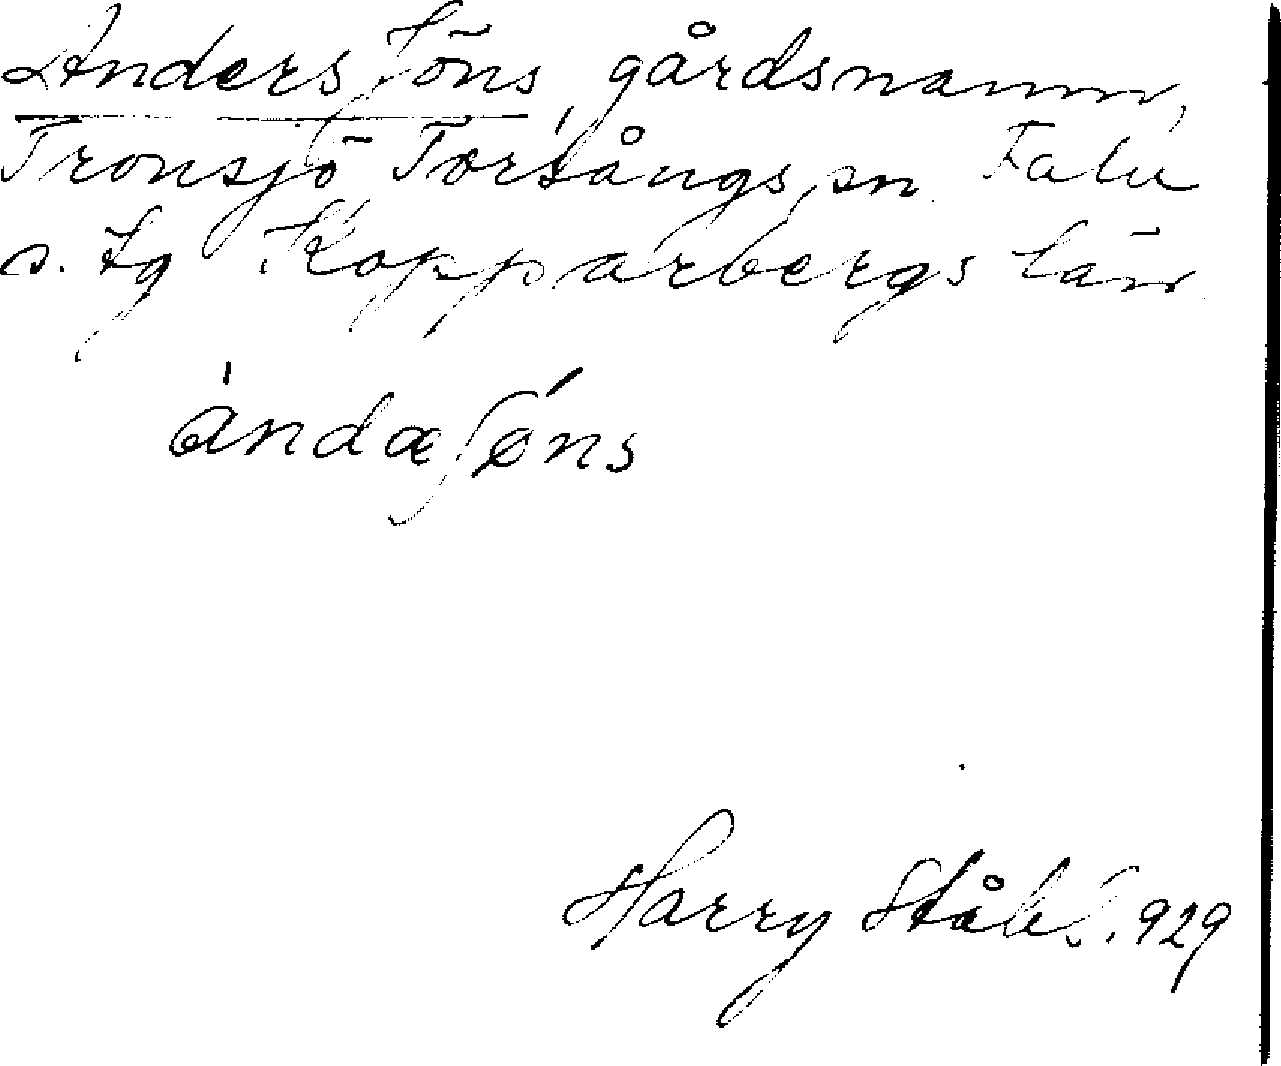 Anders Jöns, gårdsnamn,
Tronsjö Torsångs sn. Falu
s. tg Kopparbergs län
àndæʃǿns
Harry Ståhl. 929